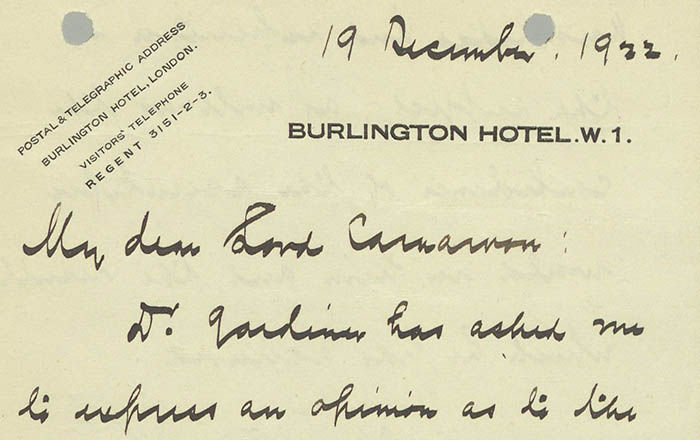 19 December. 1922.
POSTAL & TELEGRAPHIC ADDRESS
BURLINGTON HOTEL, LONDON.
VISITORS' TELEPHONE
REGENT 3151-2-3.
BURLINGTON HOTEL.W.1.
My dear Lord Carnarvon:
Dr. Gardiner has asked me
to express an opinion as to the